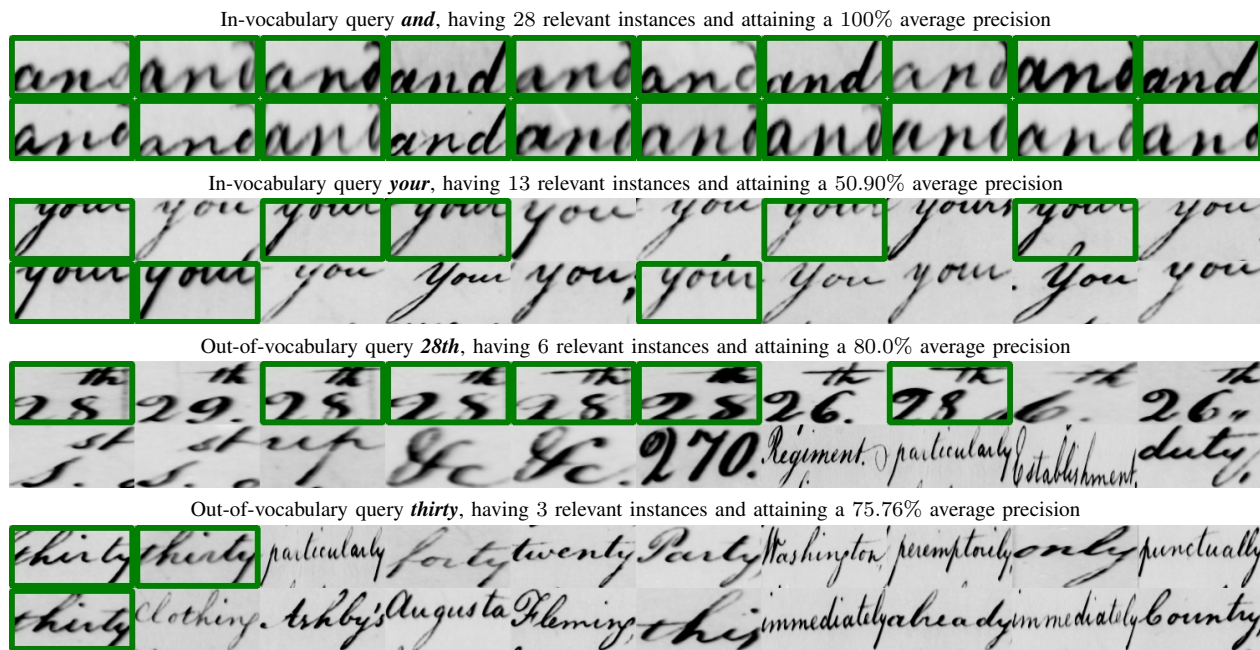 In-vocabulary query and, having 28 relevant instances and attaining a 100% average precision
and and and and and and and and and and
and and and and and and and and and and
In-vocabulary query your, having 13 relevant instances and attaining a 50.90% average precision
your you your your you you your yours your you
your your you Your you, your you your. you you
Out-of-vocabulary query 28th, having 6 relevant instances and attaining a 80.0% average precision
28th 29th. 28th 28th 28th 28th 26th. 28th 6th. 26th
st st up &c &c. 270. Regiment. particularly Establishment, duty,
Out-of-vocabulary query thirty, having 3 relevant instances and attaining a 75.76% average precision
thirty thirty particularly forty twenty Party, Washington, peremptorily, only punctually
thirty Clothing Ashby's Augusta Fleming, this immediately already immediately Country